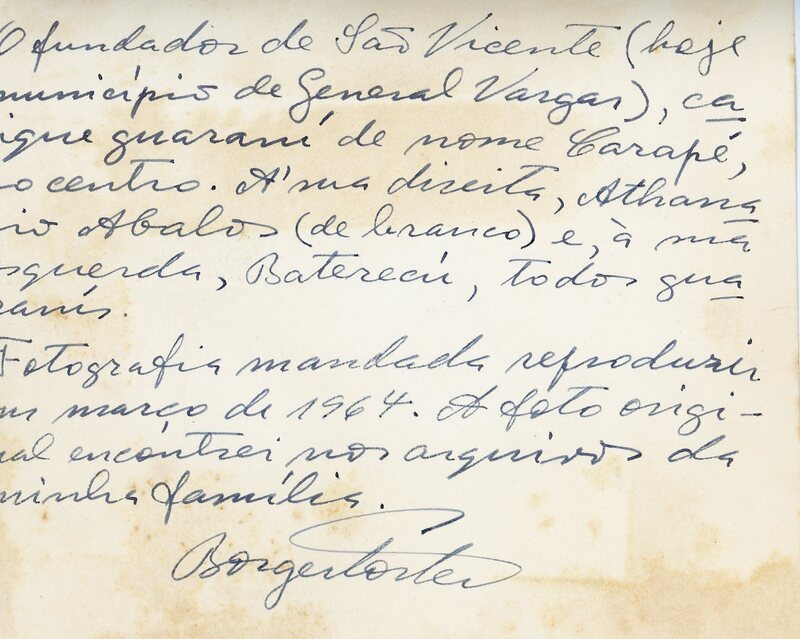 O fundador de São Vicente (hoje
município de General Vargas), ca
ique guaraní de nome Carapé,
o centro. A' sua direita, Athana
io Abalos (de branco) e, à sua
squerda, Baterecú, todos gua
ranís.
Fotografia mandada reproduzir
m março de 1964. A foto origi-
nal encontrei nos arquivos da
minha família.